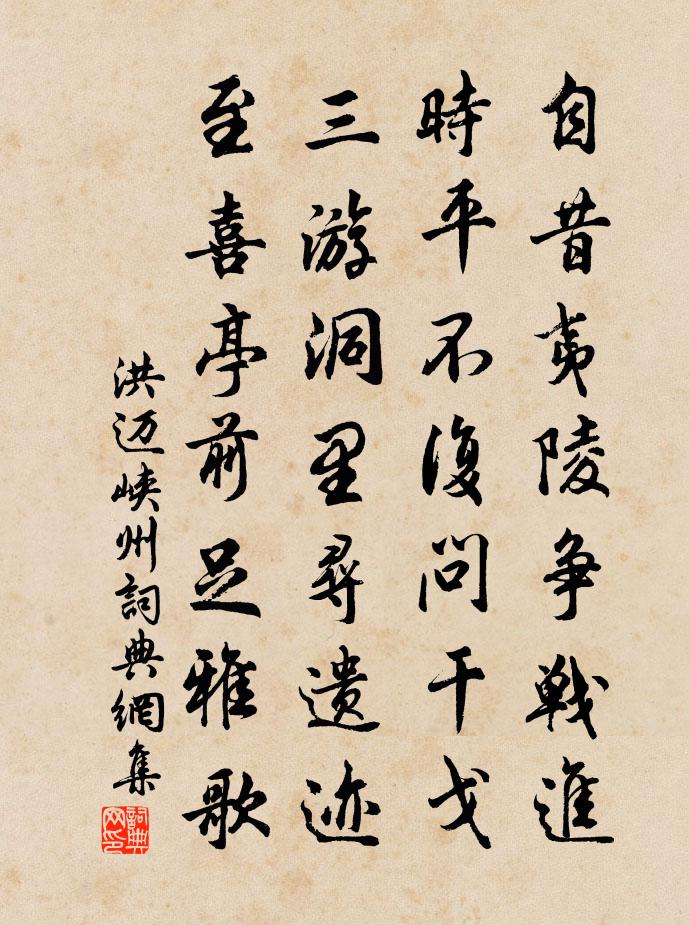 自昔夷陵争戰進
時平不復問干戈
三游洞里尋遺迹
至喜亭前足雅歌
洪迈峡州詞典網集
詞典网印